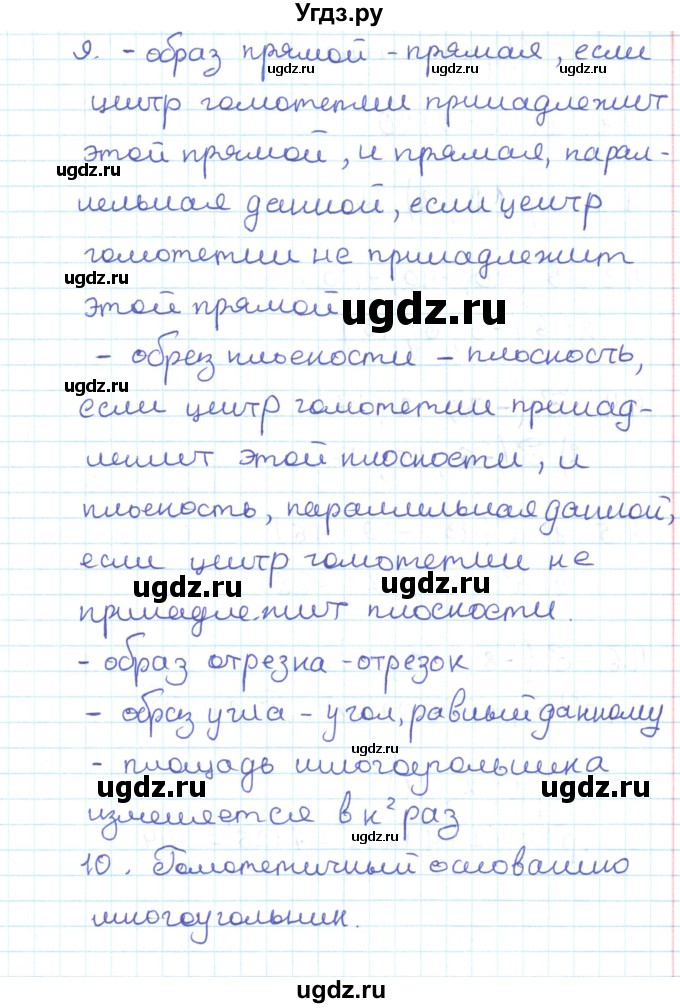 Угдз.ру
9. - образ прямой - прямая, если
ugdz.ru ugdz.ru ugdz.ru
центр гомотетии принадлежит
этой прямой, и прямая, парал-
ugdz.ru
лельная данной, если центр
гомотетии не принадлежит
ugdz.ru
этой прямой
ugdz.ru
- обрез плоскости - плоскость,
ugdz.ru
если центр гомотетии принад-
лежит этой плоскости, и
плоскость, параллельная данной,
если центр гомотетии не
ugdz.ru ugdz.ru
принадлежит плоскости.
- образ отрезка - отрезок
- образ угла - угол, равный данному
ugdz.ru
- площадь многоугольника
ugdz.ru ugdz.ru
изменяется в k² раз
ugdz.ru
10. Гомотетичный основанию
многоугольник.
ugdz.ru